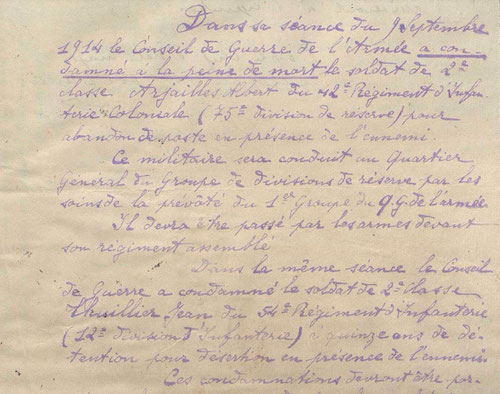 Dans sa séance du 9 Septembre
1914 le Conseil de Guerre de l'Armée a con-
damné à la peine de mort le soldat de 2e
classe Arjailles Albert du 42e Régiment d'Infan-
terie Coloniale (75e division de réserve) pour
abandon de poste en présence de l'ennemi.
Ce militaire sera conduit au Quartier
Général du Groupe de divisions de réserve par les
soins de la prévôté du 1er Groupe du Q.G. de l'armée.
Il devra être passé par les armes devant
son régiment assemblé
Dans la même séance le Conseil
de Guerre a condamné le soldat de 2e classe
Thuillier Jean du 54e Régiment d'Infanterie
(12e division d'Infanterie) à quinze ans de dé-
tention pour désertion en présence de l'ennemi
Ces condamnations devront être por-